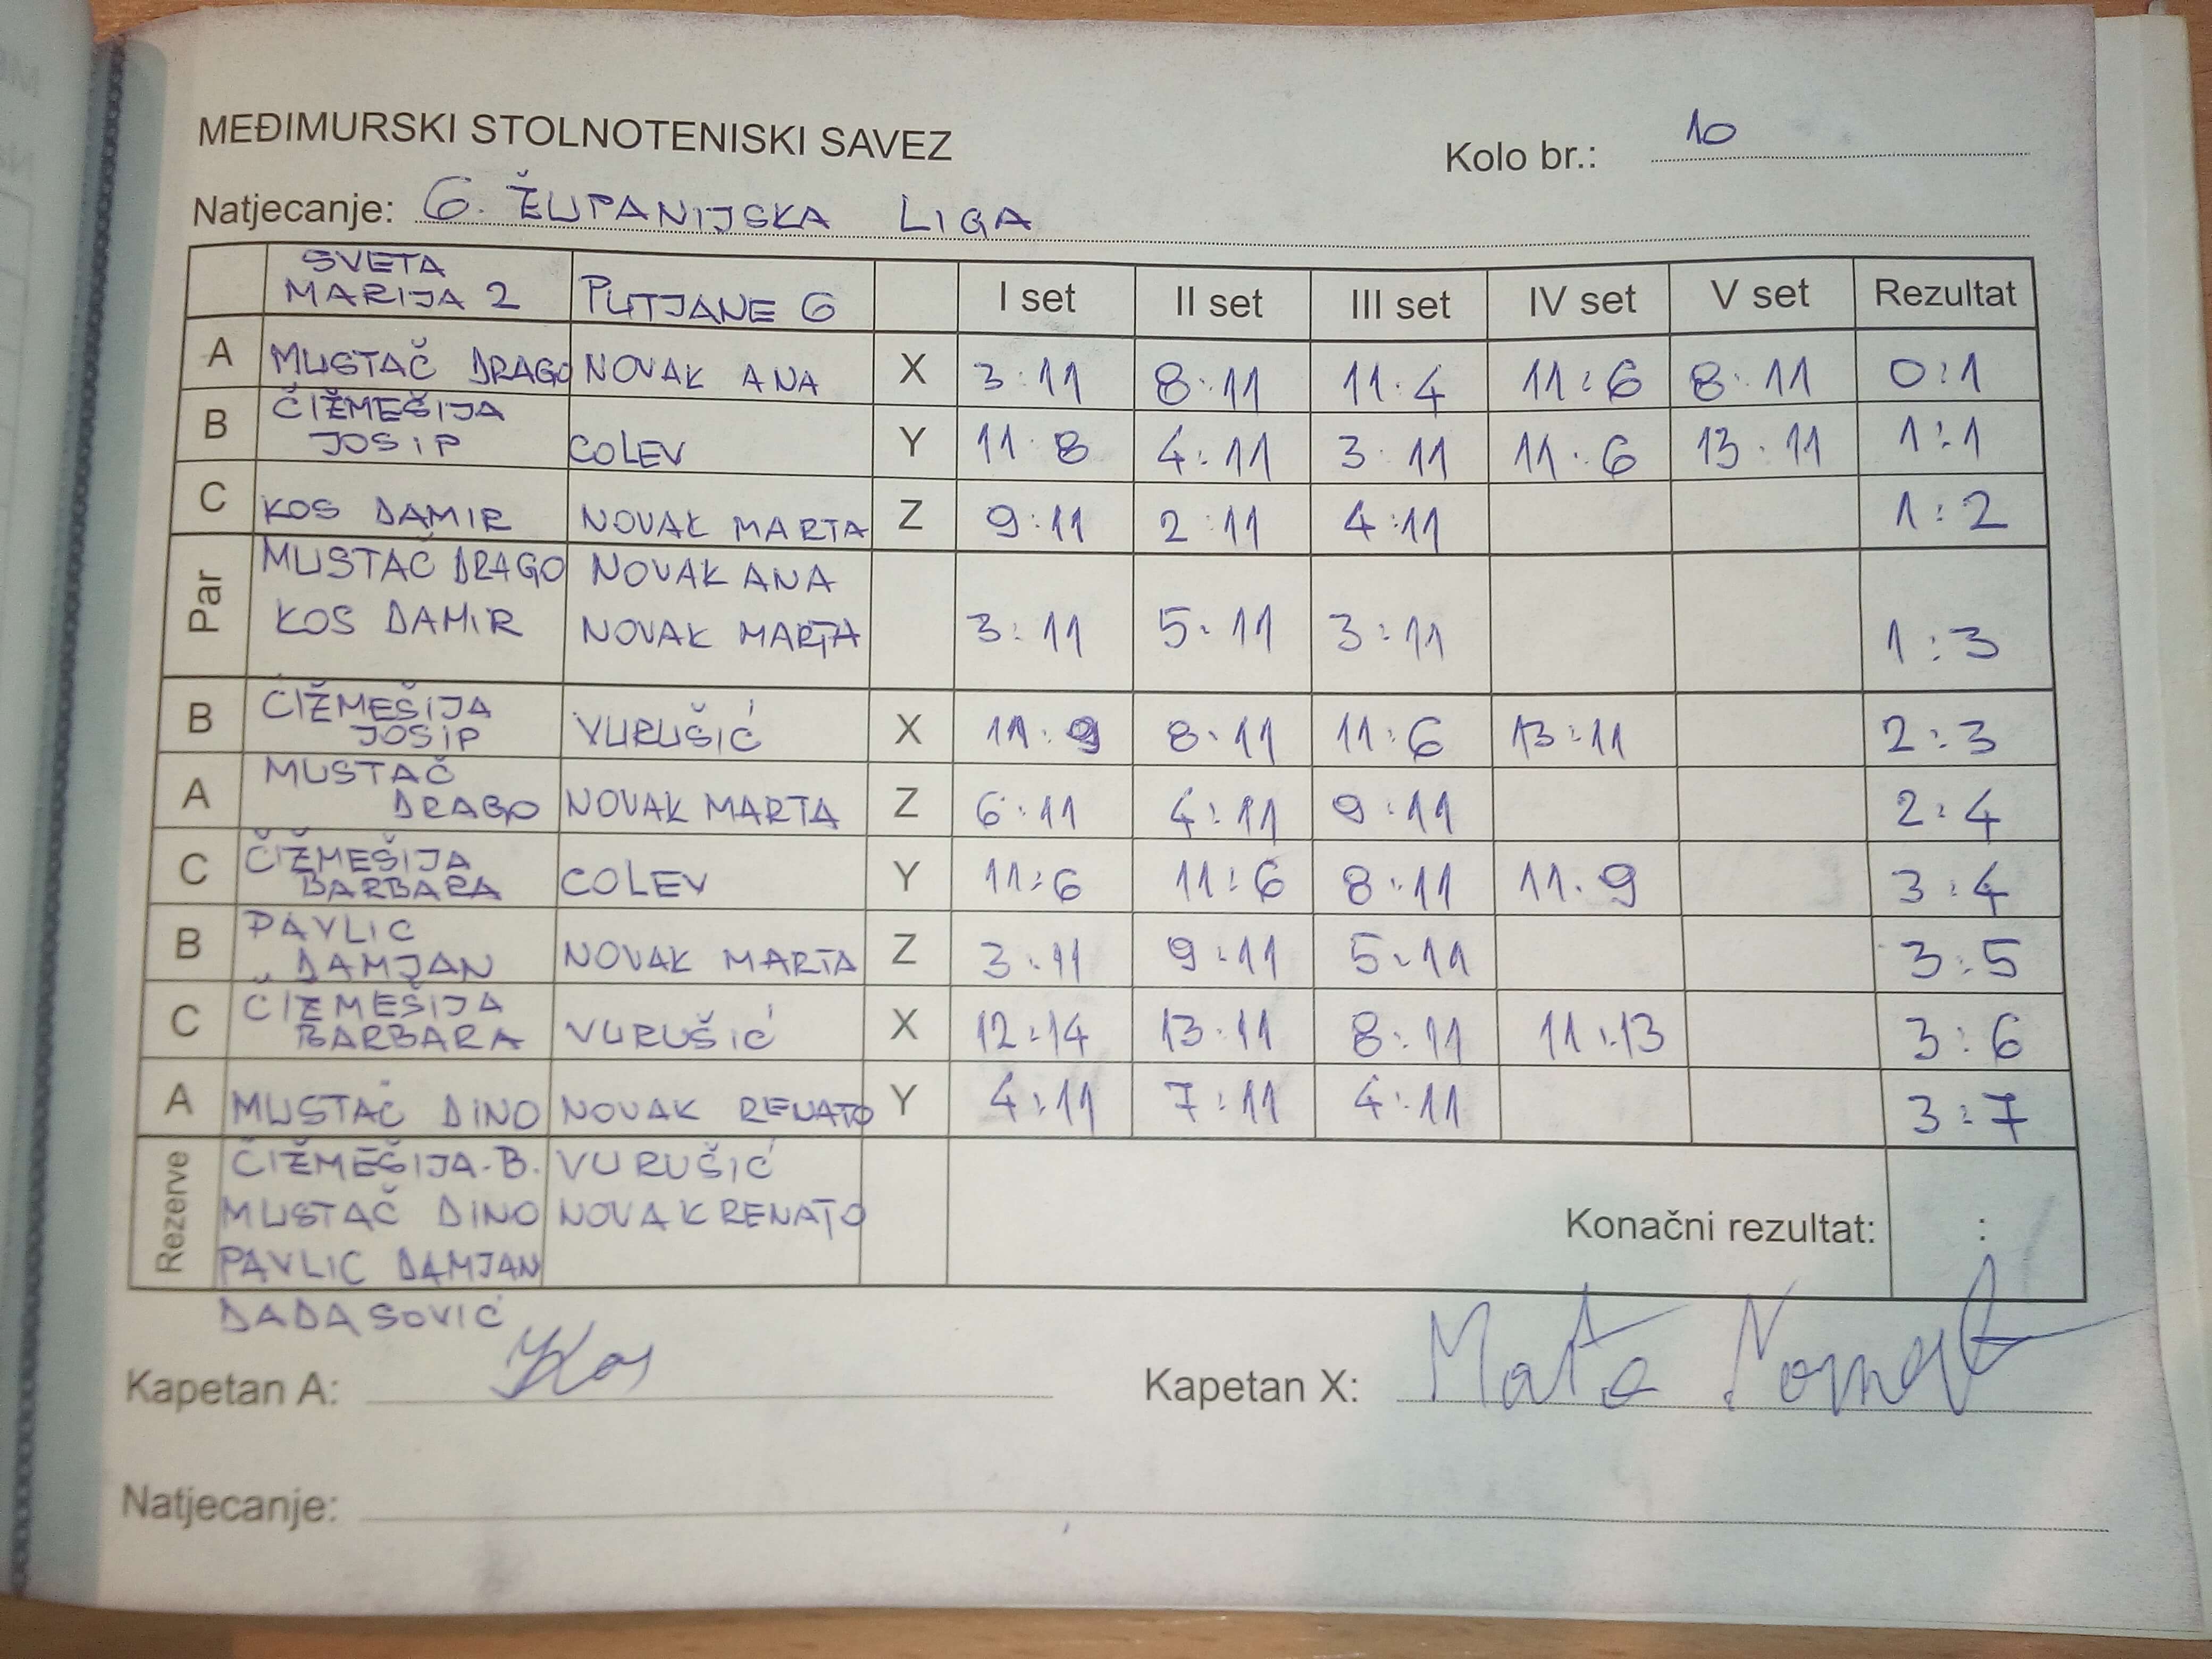 MEĐIMURSKI STOLNOTENISKI SAVEZ
Kolo br.: 10
Natjecanje: 6. ŽUPANIJSKA LIGA
SVETA MARIJA 2 PUTJANE 6 I set II set III set IV set V set Rezultat
A MUSTAČ DRAGO NOVAK ANA X 3:11 8:11 11:4 11:6 8:11 0:1
B ČIŽMEŠIJA JOSIP COLEV Y 11:8 4:11 3:11 11:6 13:11 1:1
C KOS DAMIR NOVAK MARTA Z 9:11 2:11 4:11 1:2
Par MUSTAČ DRAGO NOVAK ANA
KOS DAMIR NOVAK MARTA 3:11 5:11 3:11 1:3
B ČIŽMEŠIJA JOSIP VURUŠIĆ X 11:9 8:11 11:6 13:11 2:3
A MUSTAČ DRAGO NOVAK MARTA Z 6:11 4:11 9:11 2:4
C ČIŽMEŠIJA BARBARA COLEV Y 11:6 11:6 8:11 11:9 3:4
B PAVLIC DAMJAN NOVAK MARTA Z 3:11 9:11 5:11 3:5
C ČIŽMEŠIJA BARBARA VURUŠIĆ X 12:14 13:11 8:11 11:13 3:6
A MUSTAČ DINO NOVAK RENATO Y 4:11 7:11 4:11 3:7
Rezerve ČIŽMEŠIJA.B. VURUŠIĆ
MUSTAČ DINO NOVAK RENATO Konačni rezultat: :
PAVLIC DAMJAN
DADASOVIĆ
Kapetan A: Kos Kapetan X:
Natjecanje: